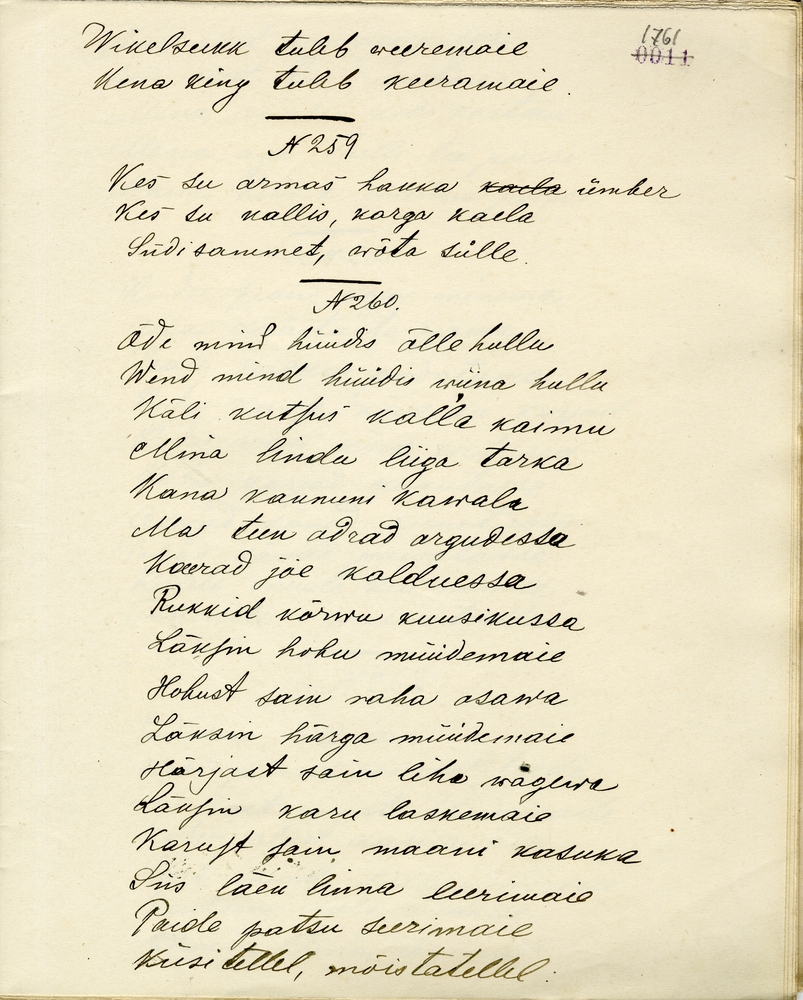 1761
0011
Wikelseukk tuleb weeremaie
Kena king tuleb keeramaie.
N 259
Kes su armas hakka kaela ümber
Kes su kallis, karga kaela
Südisammet, wõta sülle.
N 260.
Õde mind hüüdis õlle hullu
Wend mind hüüdis wiina hullu
Käli kutsus kalla kaimu
Mina lindu liiga tarka
Kana kaununi kawala
Ma teen odrad orgudessa
Kaerad jõe kalduessa
Rukkid kõrwu kuusikussa
Läksin hobu müüdemaie
Hobust sain raha osawa
Läksin härga müüdemaie
Härjast sain liha wägewa
Läksin karu laskemaie
Karust sain maani kasuka
Siis läen linna leerimaie
Paide patsu seerimaie
Küsitellel, mõistatellel.